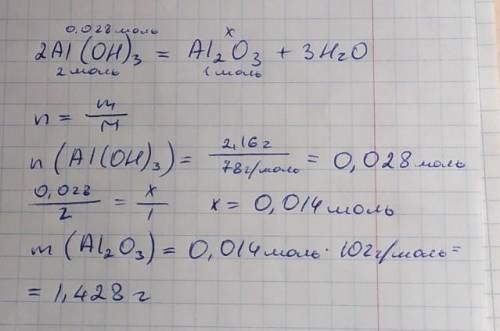 0,028 моль x
2Al(OH)₃ = Al₂O₃ + 3H₂O
2 моль 1 моль
n = m/M
n (Al(OH)₃) = 2,16 г / 78 г/моль = 0,028 моль
0,028/2 = x/1 x = 0,014 моль
m (Al₂O₃) = 0,014 моль · 102 г/моль =
= 1,428 г